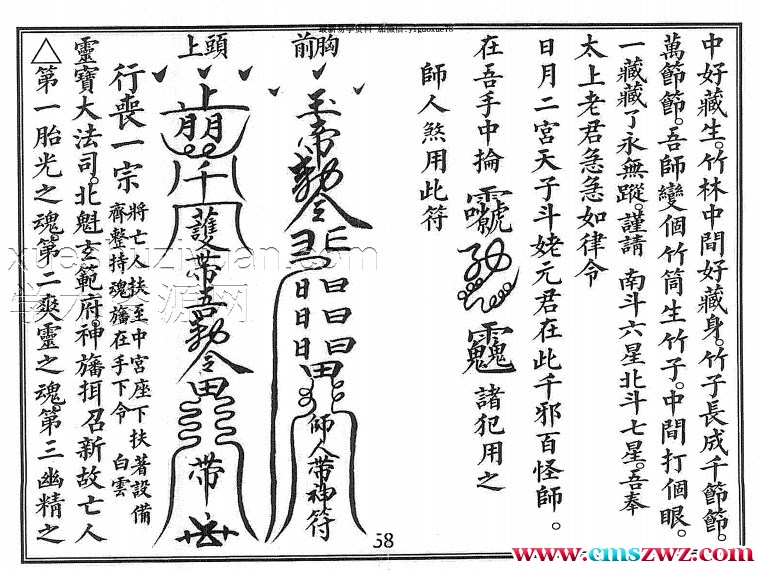 中好藏生。竹林中間好藏身。竹子長成千節節。
萬節節。吾師變個竹筒生竹子。中間打個眼。
一藏藏了永無蹤。謹請 南斗六星北斗七星。吾奉
太上老君急急如律令
日月二宮天子斗姥元君在此千邪百怪師。
在吾手中掄
諸犯用之
師人煞用此符
胸前
玉帝勅令
日日日
日日日
田
師人帶神符
頭上
上
朋
千
護帶吾勅令
田
帶
行喪一宗
將亡人扶至中宮座下扶著設備
齊整持魂旛在手下令 白雲
靈寶大法司。北魁玄範府。神旛揖召新故亡人
△第一胎光之魂。第二爽靈之魂。第三幽精之
58
www.cmszwz.com